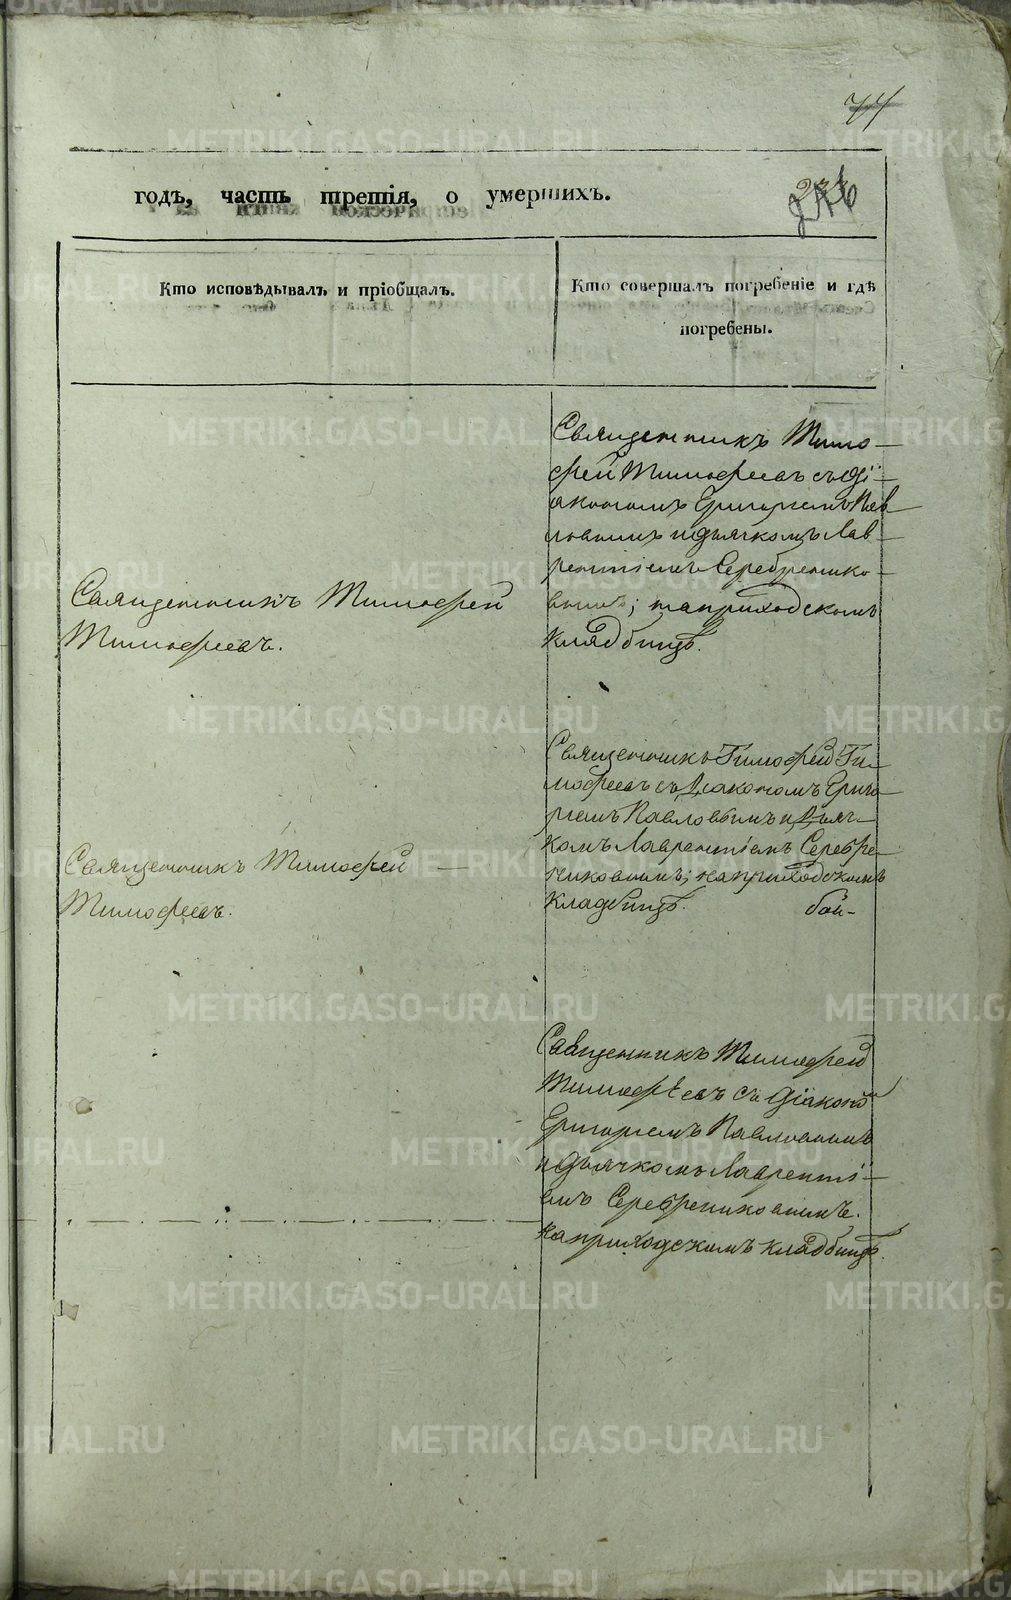 74
годъ, часть третія, о умершихъ.
Кто исповѣдывалъ и пріобщалъ.
Кто совершалъ погребеніе и гдѣ
погребены.
Священникъ Тимо-
фей Тимофеевъ съ Ді-
акономъ Григорiемъ Пав
ловымъ и дьячкомъ Лав-
рентіемъ Серебренико-
вымъ; на приходскомъ
кладбищѣ.
Священникъ Тимофей
Тимофеевъ.
Священникъ Тимофей Ти-
мофеевъ съ Діакономъ Григо-
ріемъ Павловымъ и Дьяч-
комъ Лаврентіемъ Серебре-
никовымъ; на приходскомъ
кладбищѣ.
Священникъ Тимофей —
Тимофеевъ.
Священникъ Тимофей
Тимофѣевъ съ Діаконо
Григоріемъ Павловымъ
и дьячкомъ Лаврентi-
емъ Серебрениковымъ.
на приходскомъ кладбищѣ.
METRIKI.GASO-URAL.RU